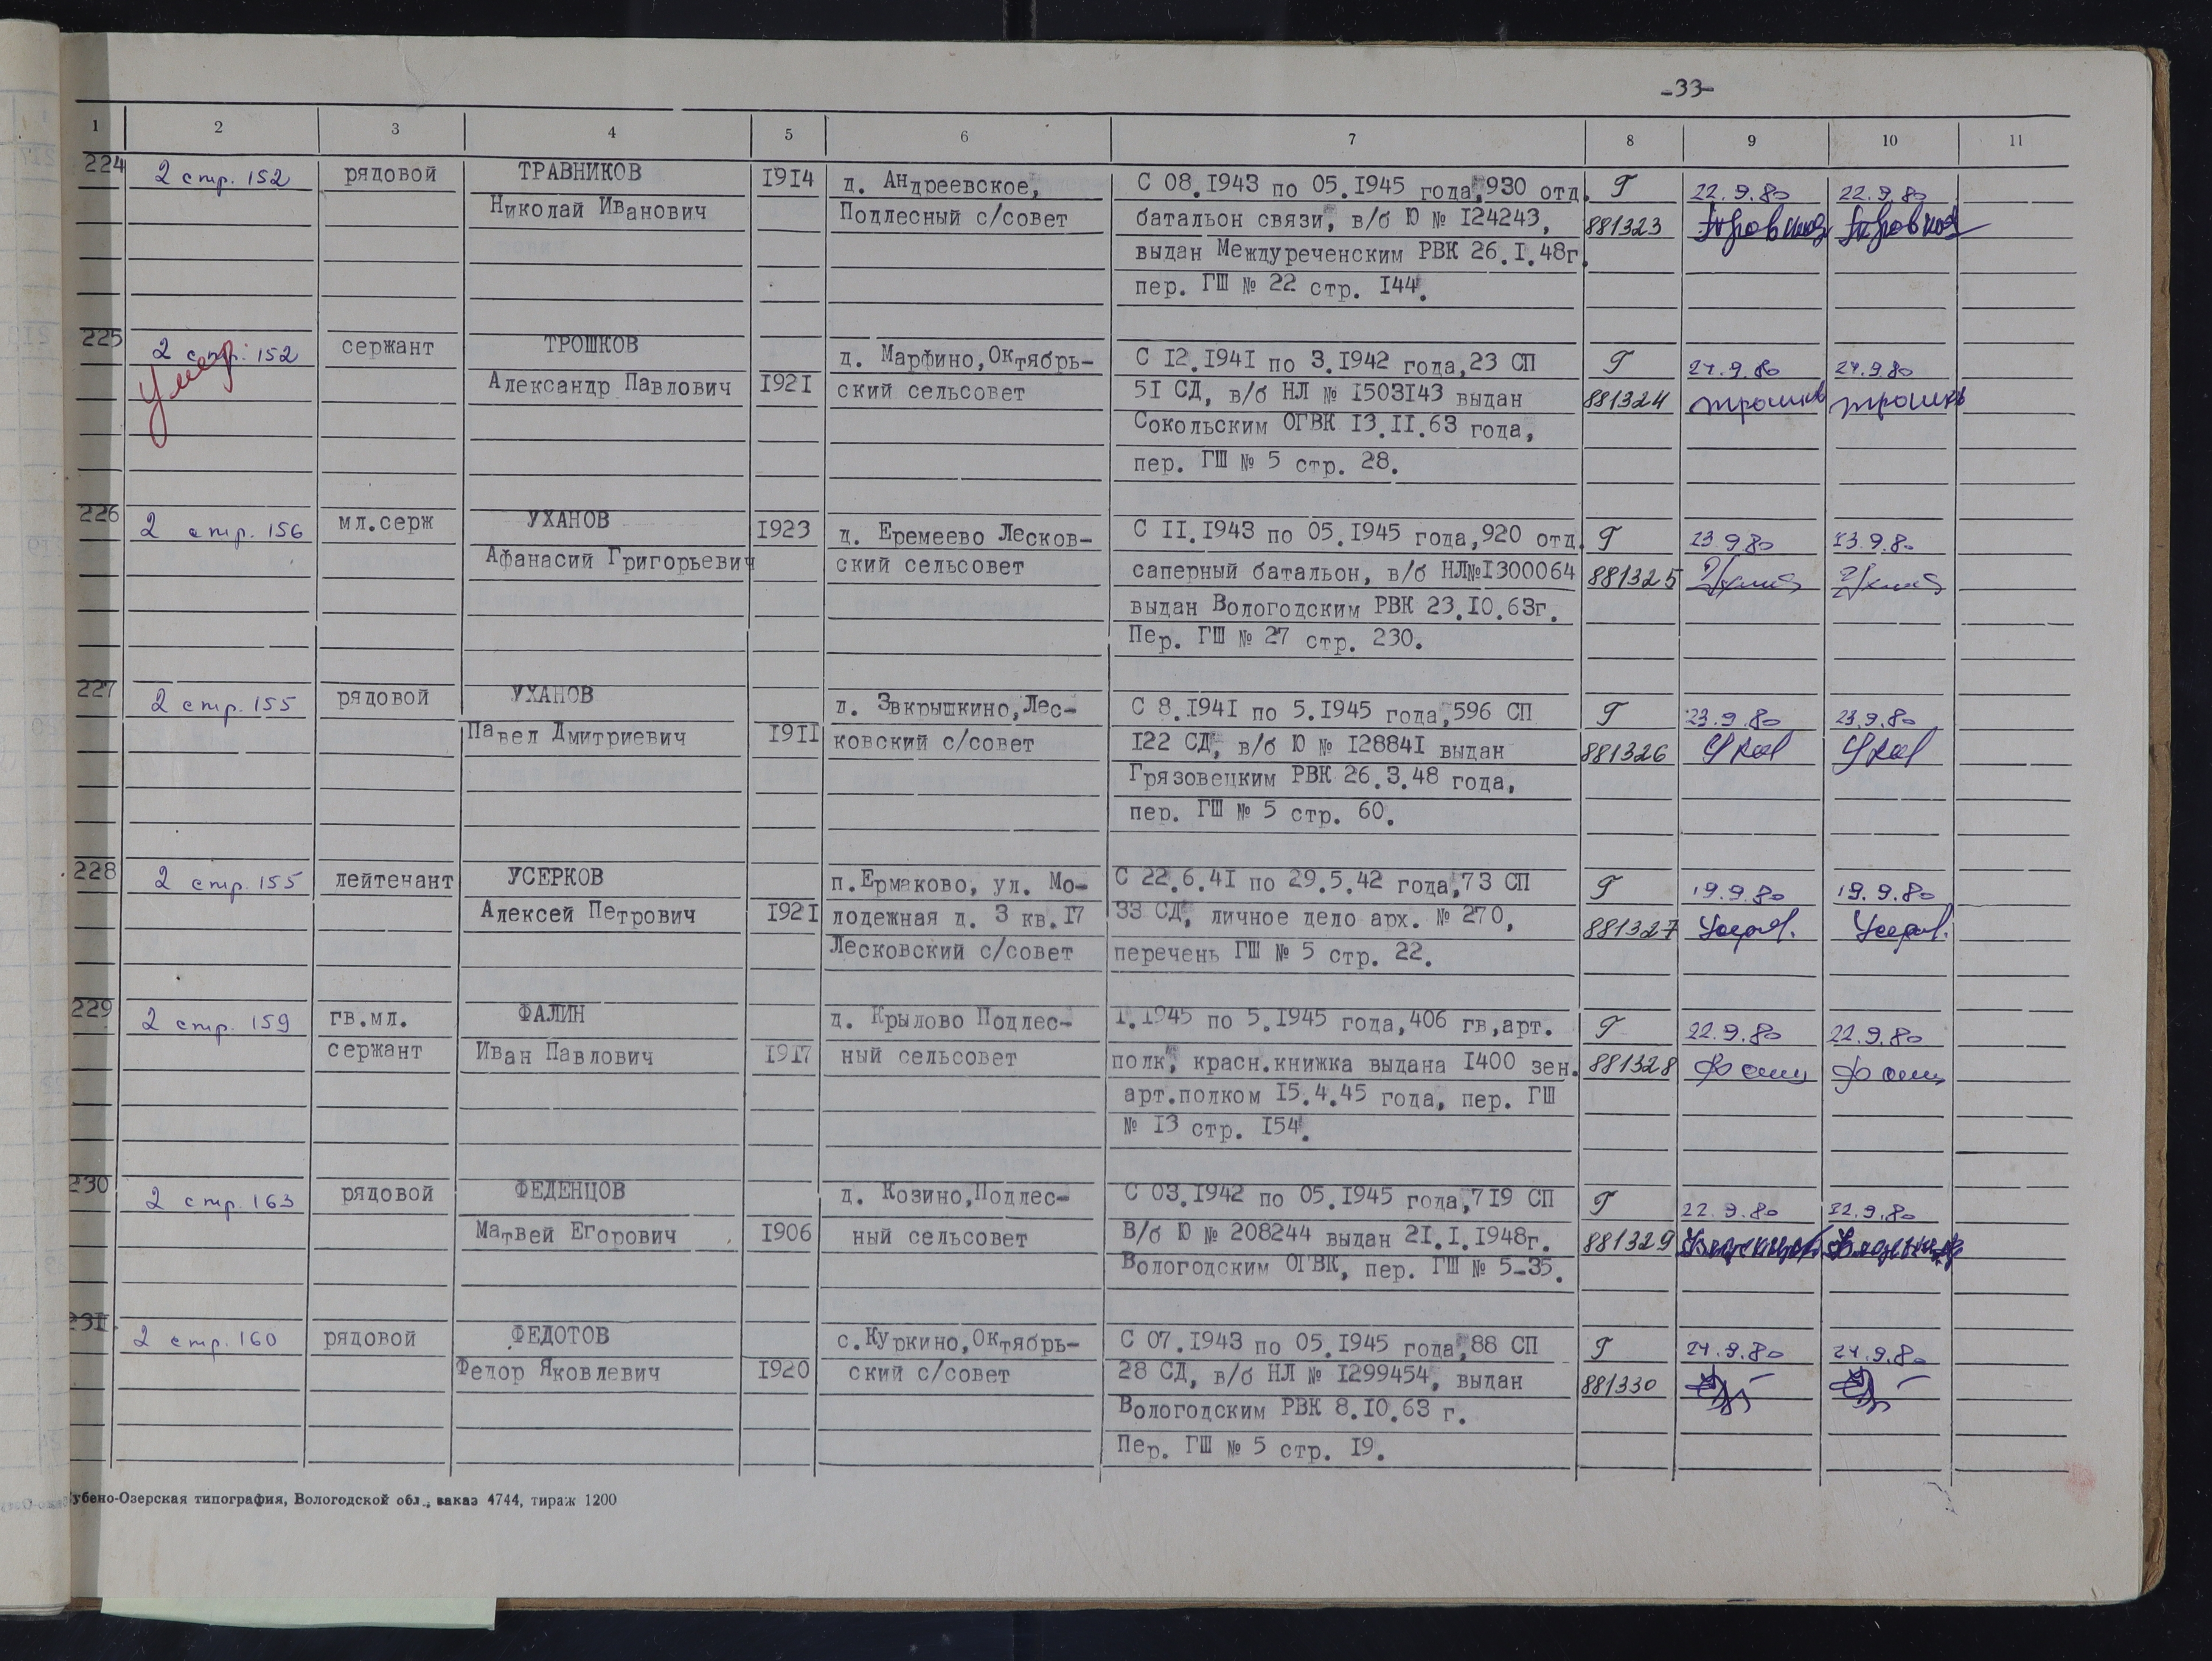 -33-
1 2 3 4 5 6 7 8 9 10 11
224 2 стр. 152 рядовой ТРАВНИКОВ 1914 д. Андреевское, С 08.1943 по 05.1945 года, 930 отд. Г 22.9.80 22.9.80
Николай Иванович Подлесный с/совет батальон связи, в/б Ю № 124243, 881323
выдан Междуреченским РВК 26.1.48г.
пер. ГШ № 22 стр. 144.
225 2 стр. 152 сержант ТРОШКОВ д. Марфино, Октябрь- С 12.1941 по 3.1942 года, 23 СП Г 24.9.80 24.9.80
Умер Александр Павлович 1921 ский сельсовет 51 СД, в/б НЛ № 1503143 выдан 881324 Трошков Трошков
Сокольским ОГВК 13.11.63 года,
пер. ГШ № 5 стр. 28.
226 2 стр. 156 мл.серж УХАНОВ 1923 д. Еремеево Лесков- С 11.1943 по 05.1945 года, 920 отд. Г 23.9.80 23.9.80
Афанасий Григорьевич ский сельсовет саперный батальон, в/б НЛ№1300064 881325
выдан Вологодским РВК 23.10.63г.
Пер. ГШ № 27 стр. 230.
227 2 стр. 155 рядовой УХАНОВ д. Звкрышкино, Лес- С 8.1941 по 5.1945 года, 596 СП Г 23.9.80 23.9.80
Павел Дмитриевич 1911 ковский с/совет 122 СД, в/б Ю № 128841 выдан 881326
Грязовецким РВК 26.3.48 года,
пер. ГШ № 5 стр. 60.
228 2 стр. 155 лейтенант УСЕРКОВ п.Ермаково, ул. Мо- С 22.6.41 по 29.5.42 года, 73 СП Г 19.9.80 19.9.80
Алексей Петрович 1921 лодежная д. 3 кв.17 33 СД, личное дело арх. № 270, 881327
Лесковский с/совет перечень ГШ № 5 стр. 22.
229 2 стр. 159 гв.мл. ФАЛИН д. Крылово Подлес- 1.1945 по 5.1945 года, 406 гв,арт. Г 22.9.80 22.9.80
сержант Иван Павлович 1917 ный сельсовет полк, красн.книжка выдана 1400 зен. 881328
арт.полком 15.4.45 года, пер. ГШ
№ 13 стр. 154.
230 2 стр. 163 рядовой ФЕДЕНЦОВ д. Козино, Подлес- С 03.1942 по 05.1945 года, 719 СП Г 22.9.80 22.9.80
Матвей Егорович 1906 ный сельсовет В/б Ю № 208244 выдан 21.1.1948г. 881329
Вологодским ОГВК, пер. ГШ № 5-35.
231. 2 стр. 160 рядовой ФЕДОТОВ с.Куркино, Октябрь- С 07.1943 по 05.1945 года, 88 СП Г 24.9.80 24.9.80
Федор Яковлевич 1920 ский с/совет 28 СД, в/б НЛ № 1299454, выдан 881330
Вологодским РВК 8.10.63 г.
Пер. ГШ № 5 стр. 19.
убено-Озерская типография, Вологодской обл., заказ 4744, тираж 1200